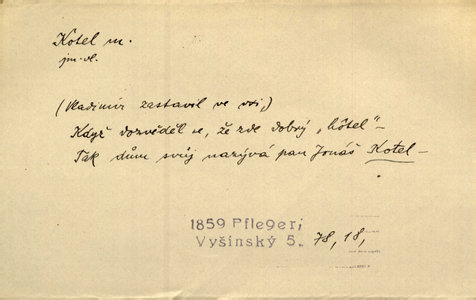 Kotel m.
jm. vl.
(Vladimír zastavil ve vsi,)
Když dozvěděl se, že zde dobrý „hôtel“ –
Tak dům svůj nazývá pan Jonáš Kotel –
1859 Pfleger,
Vyšínský 5. 78, 18,